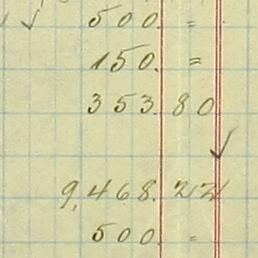 500. =
150. =
353.80
9,468.22
500. =